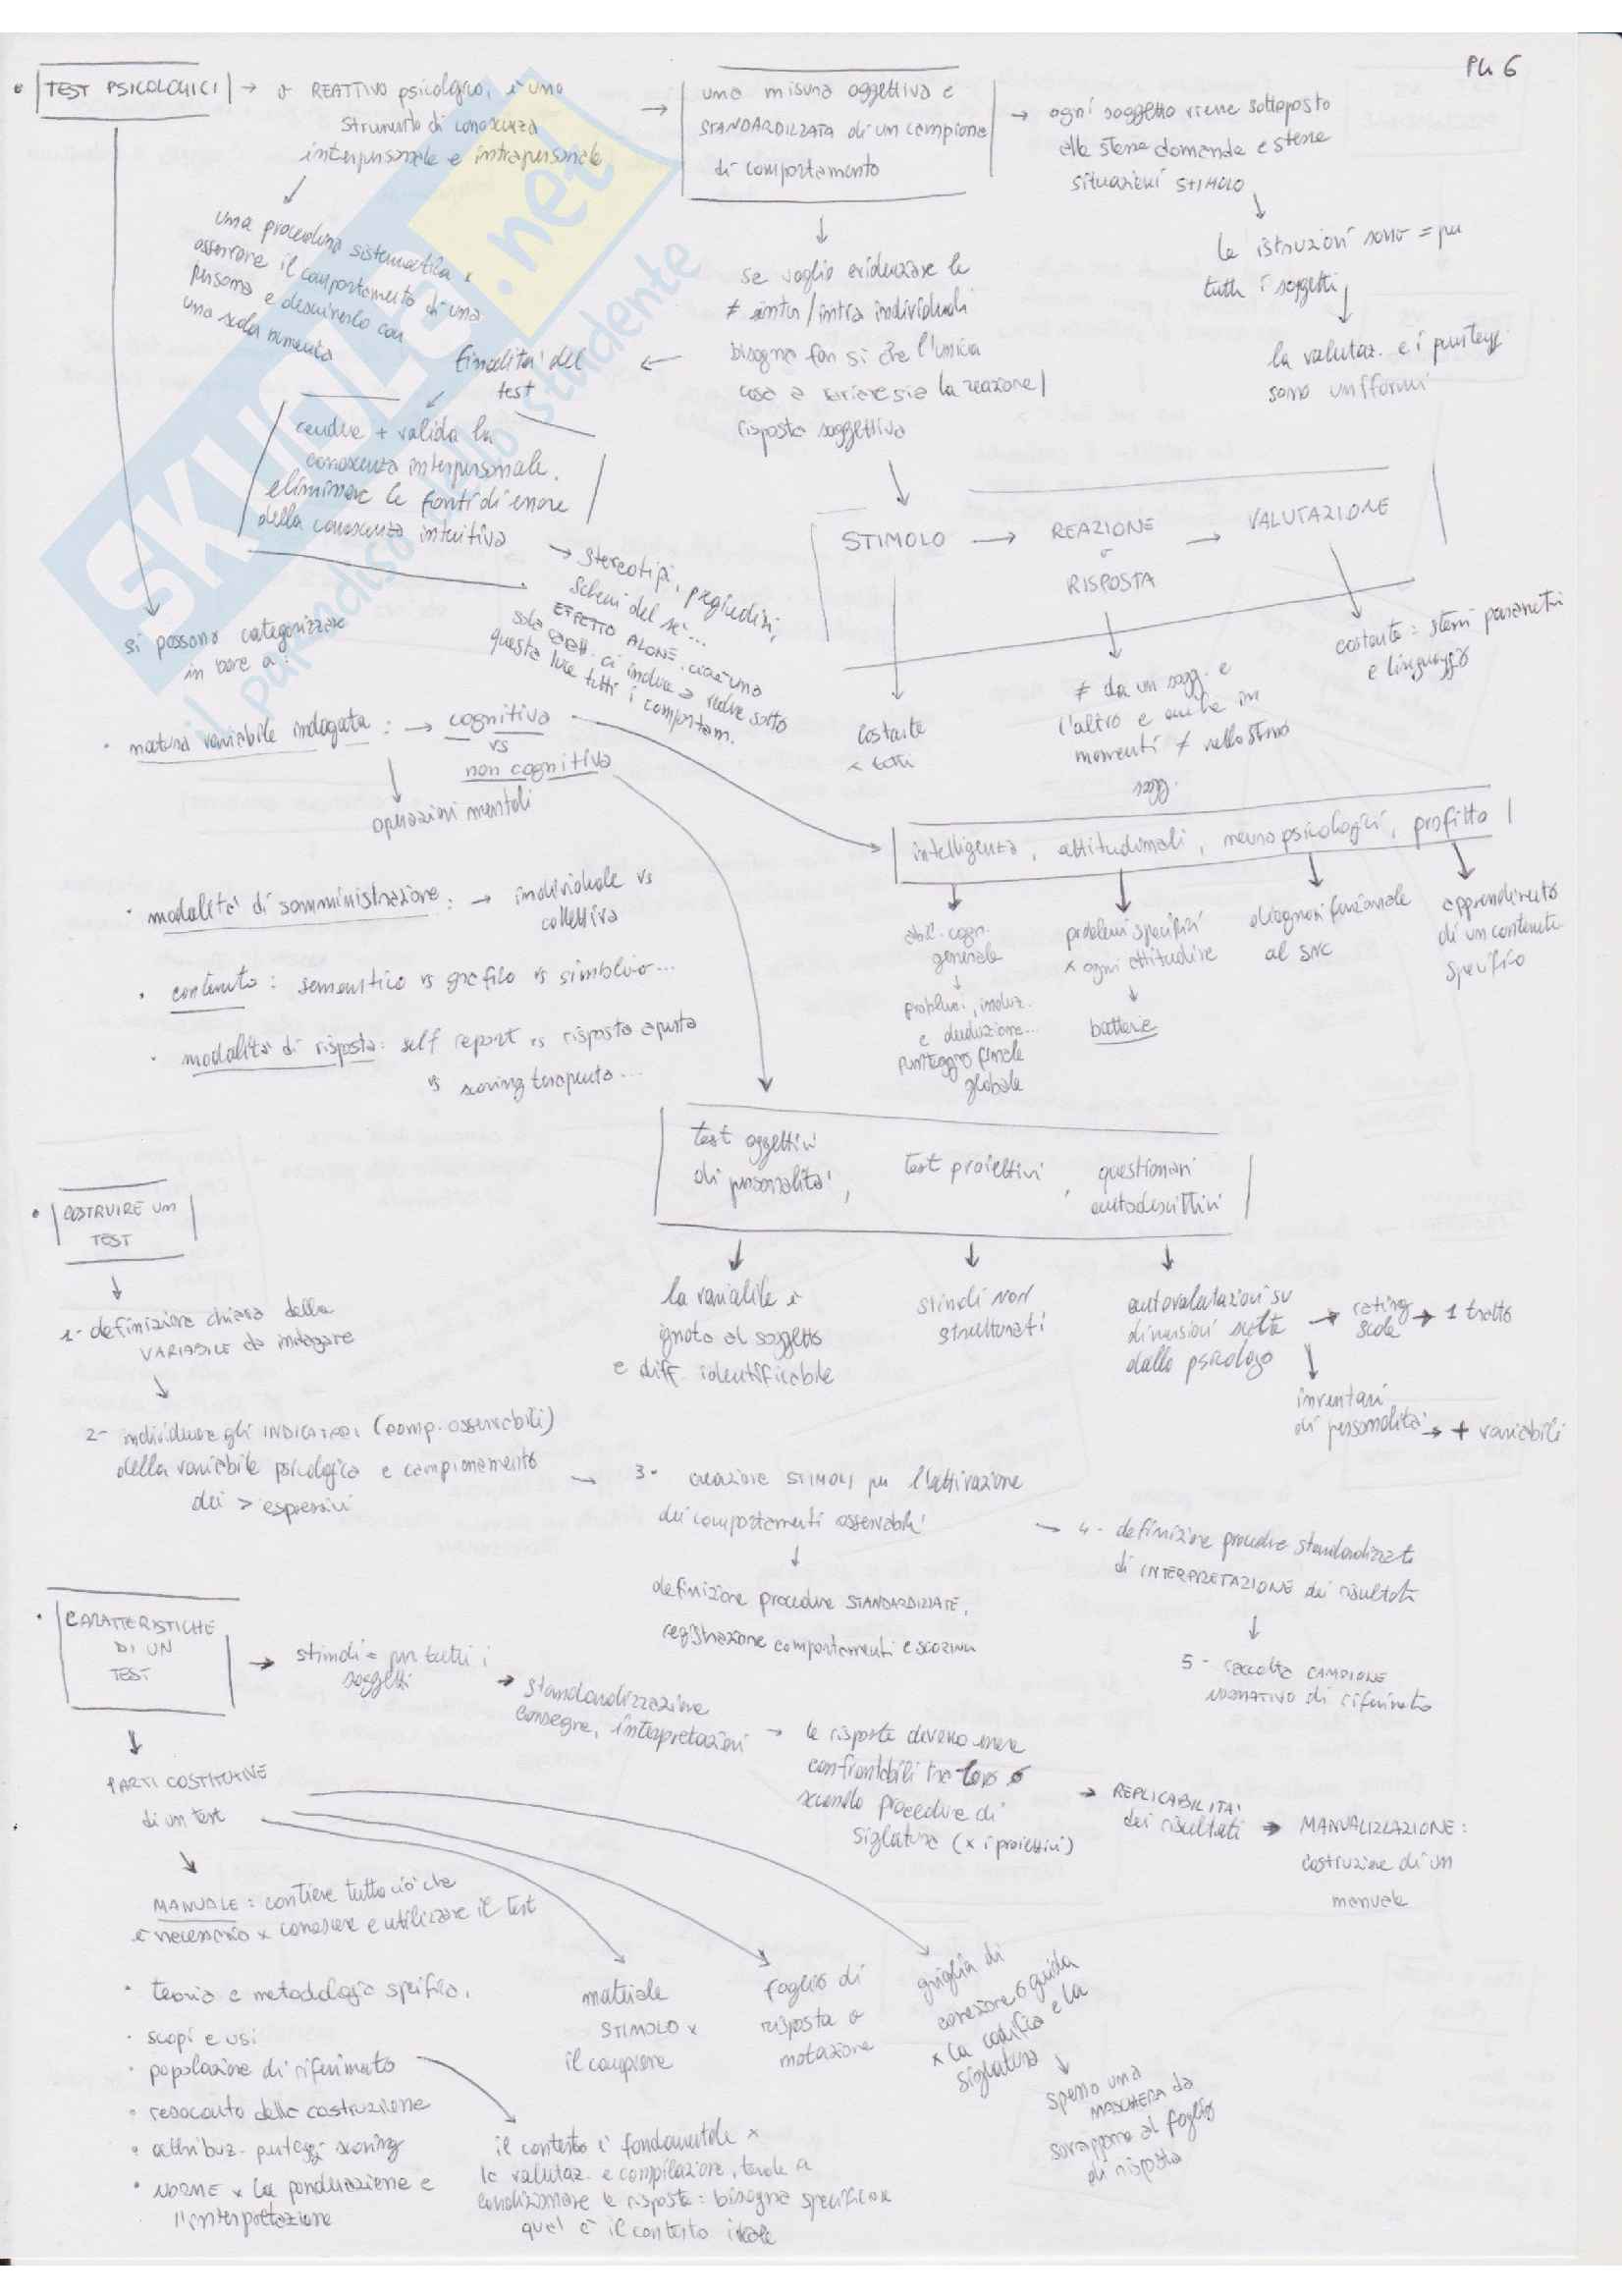 PG 6
• TEST PSICOLOGICI → o REATTIVO psicologico, è uno
strumento di conoscenza
interpersonale e intrapersonale
→ una misura oggettiva e
STANDARDIZZATA di un campione
di comportamento
→ ogni soggetto viene sottoposto
alle stesse domande e stesse
situazioni STIMOLO
↓
le istruzioni sono = per
tutti i soggetti
↓
la valutaz. e i punteggi
sono uniformi
una procedura sistematica x
osservare il comportamento di una
persona e descriverlo con
una scala numerica
se voglio evidenziare le
≠ inter/intra individuali
bisogna far sì che l'unica
cosa a variare sia la reazione/
risposta soggettiva
← finalità del
test
rendere + valida la
conoscenza interpersonale,
eliminare le fonti di errore
della conoscenza intuitiva
→ stereotipi, pregiudizi,
schemi del sé...
EFFETTO ALONE, cioè una
sola caratt. ci induce a vedere sotto
questa luce tutti i comportam.
STIMOLO → REAZIONE → VALUTAZIONE
o
RISPOSTA
costante
x tutti
≠ da un sogg. e
l'altro e anche in
momenti ≠ nello stesso
sogg.
costante: stessi parametri
e linguaggio
si possono categorizzare
in base a:
• natura variabile indagata: → cognitiva
vs
non cognitiva
operazioni mentali
intelligenza, attitudinali, neuropsicologici, profitto
abil. cogn.
generale
↓
problemi, induz.
e deduzione...
punteggio finale
globale
problemi specifici
x ogni attitudine
↓
batterie
diagnosi funzionale
al SNC
apprendimento
di un contenuto
specifico
• modalità di somministrazione: → individuale vs
collettiva
• contenuto: semantico vs grafico vs simbolico...
• modalità di risposta: self report vs risposta aperta
vs scoring terapeuta...
test oggettivi
di personalità,
test proiettivi,
questionari
autodescrittivi
la variabile è
ignota al soggetto
e diff. identificabile
stimoli non
strutturati
autovalutazioni su
dimensioni scelte
dallo psicologo
→ rating
scale → 1 tratto
inventari
di personalità → + variabili
• COSTRUIRE UN
TEST
↓
1- definizione chiara della
VARIABILE da indagare
2- individuare gli INDICATORI (comp. osservabili)
della variabile psicologica e campionamento
dei > espressivi
→ 3- creazione STIMOLI per l'attivazione
dei comportamenti osservabili
↓
definizione procedure STANDARDIZZATE,
registrazione comportamenti e SCORING
→ 4- definizione procedure standardizzate
di INTERPRETAZIONE dei risultati
↓
5- raccolta CAMPIONE
NORMATIVO di riferimento
• CARATTERISTICHE
DI UN
TEST
→ stimoli = per tutti i
soggetti
→ standardizzazione
consegne, interpretazioni
→ le risposte devono essere
confrontabili tra loro
secondo procedure di
siglatura (x i proiettivi)
→ REPLICABILITÀ
dei risultati
→ MANUALIZZAZIONE:
costruzione di un
manuale
PARTI COSTITUTIVE
di un test
MANUALE: contiene tutto ciò che
è necessario x conoscere e utilizzare il test
• teoria e metodologia specifica,
• scopi e usi
• popolazione di riferimento
• resoconto della costruzione
• attribuz. punteggi scoring
• NORME x la ponderazione e
l'interpretazione
materiale
STIMOLO x
il campione
foglio di
risposta o
notazione
griglia di
correzione o guida
x la codifica e la
siglatura
↓
spesso una
MASCHERA da
sovrapporre al foglio
di risposta
il contesto è fondamentale x
la valutaz. e compilazione, tende a
condizionare le risposte: bisogna specificare
qual è il contesto ideale
SKUOLA.net
il paradiso dello studente